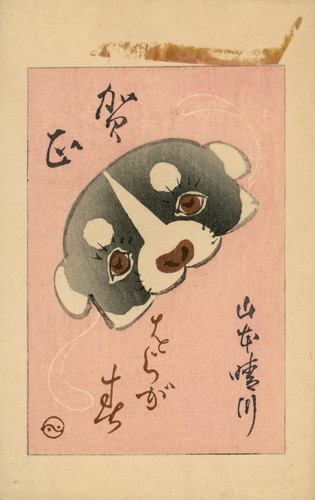 賀
正
おらが
春
山本晴川